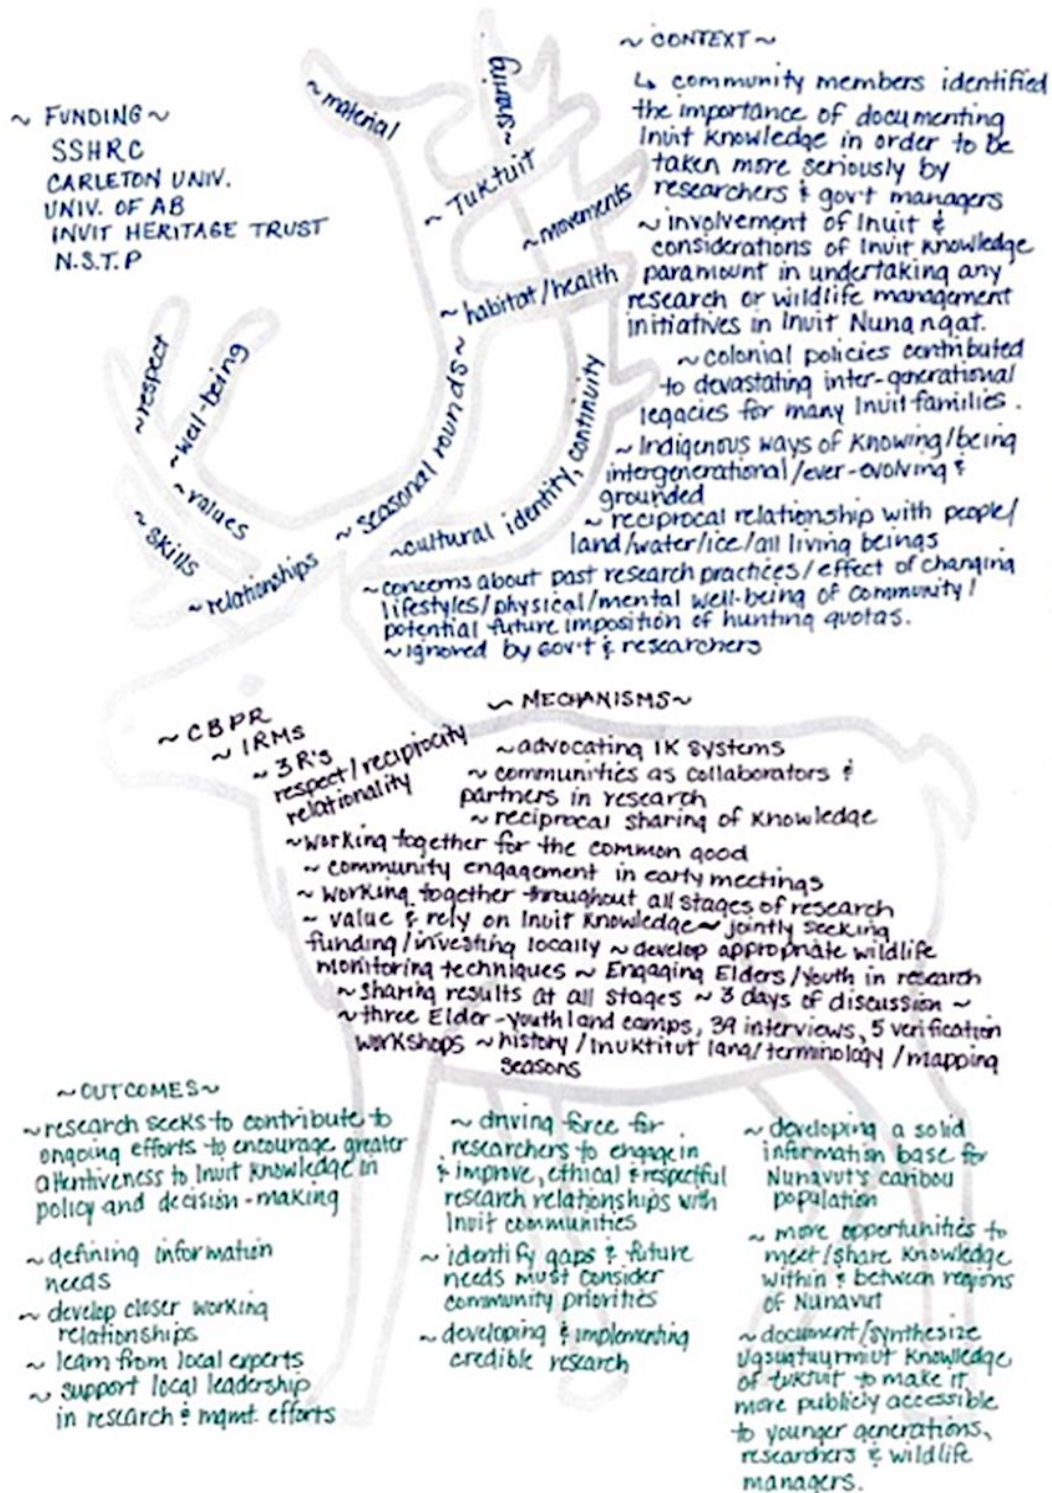 ~ FUNDING ~
SSHRC
CARLETON UNIV.
UNIV. OF AB
INUIT HERITAGE TRUST
N.S.T.P
~ material
~ sharing
~ Tuktuit
~ movements
~ habitat/health
~ seasonal rounds ~
~ cultural identity, continuity
~ respect
~ well-being
~ values
~ skills
~ relationships
~ CONTEXT ~
↳ community members identified
the importance of documenting
Inuit knowledge in order to be
taken more seriously by
researchers & gov't managers
~ involvement of Inuit &
considerations of Inuit knowledge
paramount in undertaking any
research or wildlife management
initiatives in Inuit Nunangat.
~ colonial policies contributed
to devastating inter-generational
legacies for many Inuit families.
~ Indigenous ways of knowing/being
intergenerational/ever-evolving &
grounded
~ reciprocal relationship with people/
land/water/ice/all living beings
~ concerns about past research practices/effect of changing
lifestyles/physical/mental well-being of community/
potential future imposition of hunting quotas.
~ ignored by gov't & researchers
~ CBPR
~ IRMs
~ 3R's
respect/reciprocity
relationality
~ MECHANISMS ~
~ advocating IK systems
~ communities as collaborators &
partners in research
~ reciprocal sharing of knowledge
~ working together for the common good
~ community engagement in early meetings
~ working together throughout all stages of research
~ value & rely on Inuit Knowledge ~ jointly seeking
funding/investing locally ~ develop appropriate wildlife
monitoring techniques ~ Engaging Elders/Youth in research
~ sharing results at all stages ~ 3 days of discussion ~
~ three Elder-youth land camps, 39 interviews, 5 verification
workshops ~ history/Inuktitut lang/terminology/mapping
seasons
~ OUTCOMES ~
~ research seeks to contribute to
ongoing efforts to encourage greater
attentiveness to Inuit Knowledge in
policy and decision-making
~ defining information
needs
~ develop closer working
relationships
~ learn from local experts
~ support local leadership
in research & mgmt. efforts
~ driving force for
researchers to engage in
& improve, ethical & respectful
research relationships with
Inuit communities
~ identify gaps & future
needs must consider
community priorities
~ developing & implementing
credible research
~ developing a solid
information base for
Nunavut's caribou
population
~ more opportunities to
meet/share knowledge
within & between regions
of Nunavut
~ document/synthesize
Uqsuqtuurmiut knowledge
of tuktuit to make it
more publicly accessible
to younger generations,
researchers & wildlife
managers.